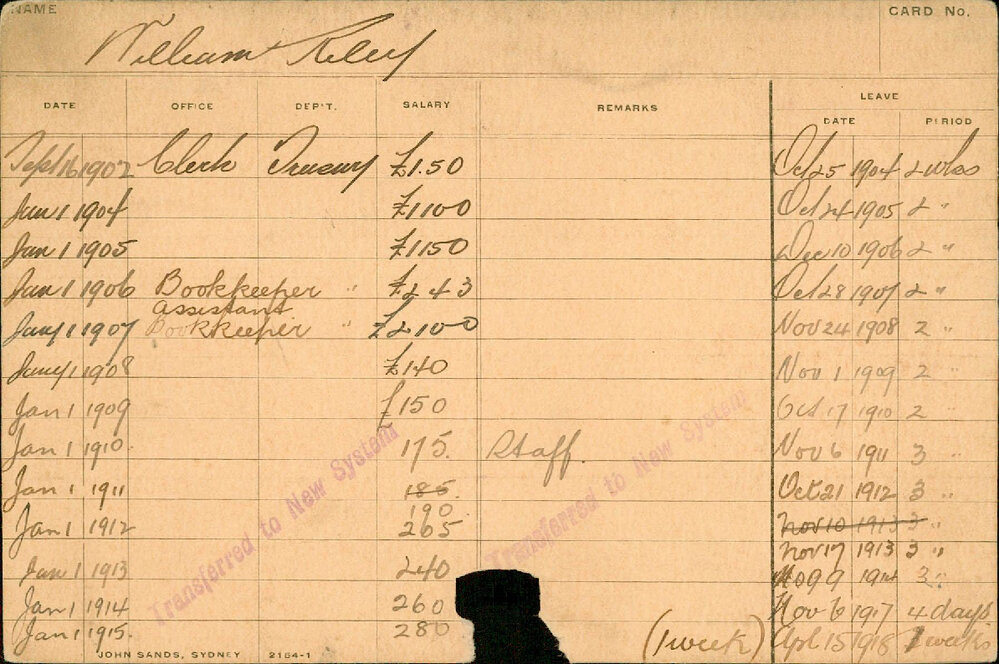 NAME CARD No.
William Riley
DATE OFFICE DEP'T. SALARY REMARKS LEAVE
DATE PERIOD
Sept 16 1902 Clerk Treasury £1.50 Oct 25 1904 2 wks
Jan 1 1904 £1100 Oct 24 1905 2 "
Jan 1 1905 £1150 Dec 10 1906 2 "
Jan 1 1906 Bookkeeper " £243 Oct 28 1907 2 "
Assistant
Jany 1 1907 Bookkeeper " £2100 Nov 24 1908 2 "
Jany 1 1908 £140 Nov 1 1909 2 "
Jan 1 1909 £150 Oct 17 1910 2 "
Jan 1 1910. 175. Staff. Nov 6 1911 3 "
Jan 1 1911 185. Oct 21 1912 3 "
190
Jan 1 1912 265 Nov 10 1913 3 "
Nov 17 1913 3 "
Jan 1 1913 240 9 1914 3 "
Jan 1 1914 260 Nov 6 1917 4 days
Jan 1 1915. 280 (1 week) Apl 15 1918 weeks
Transferred to New System
Transferred to New System
JOHN SANDS, SYDNEY 2154-1